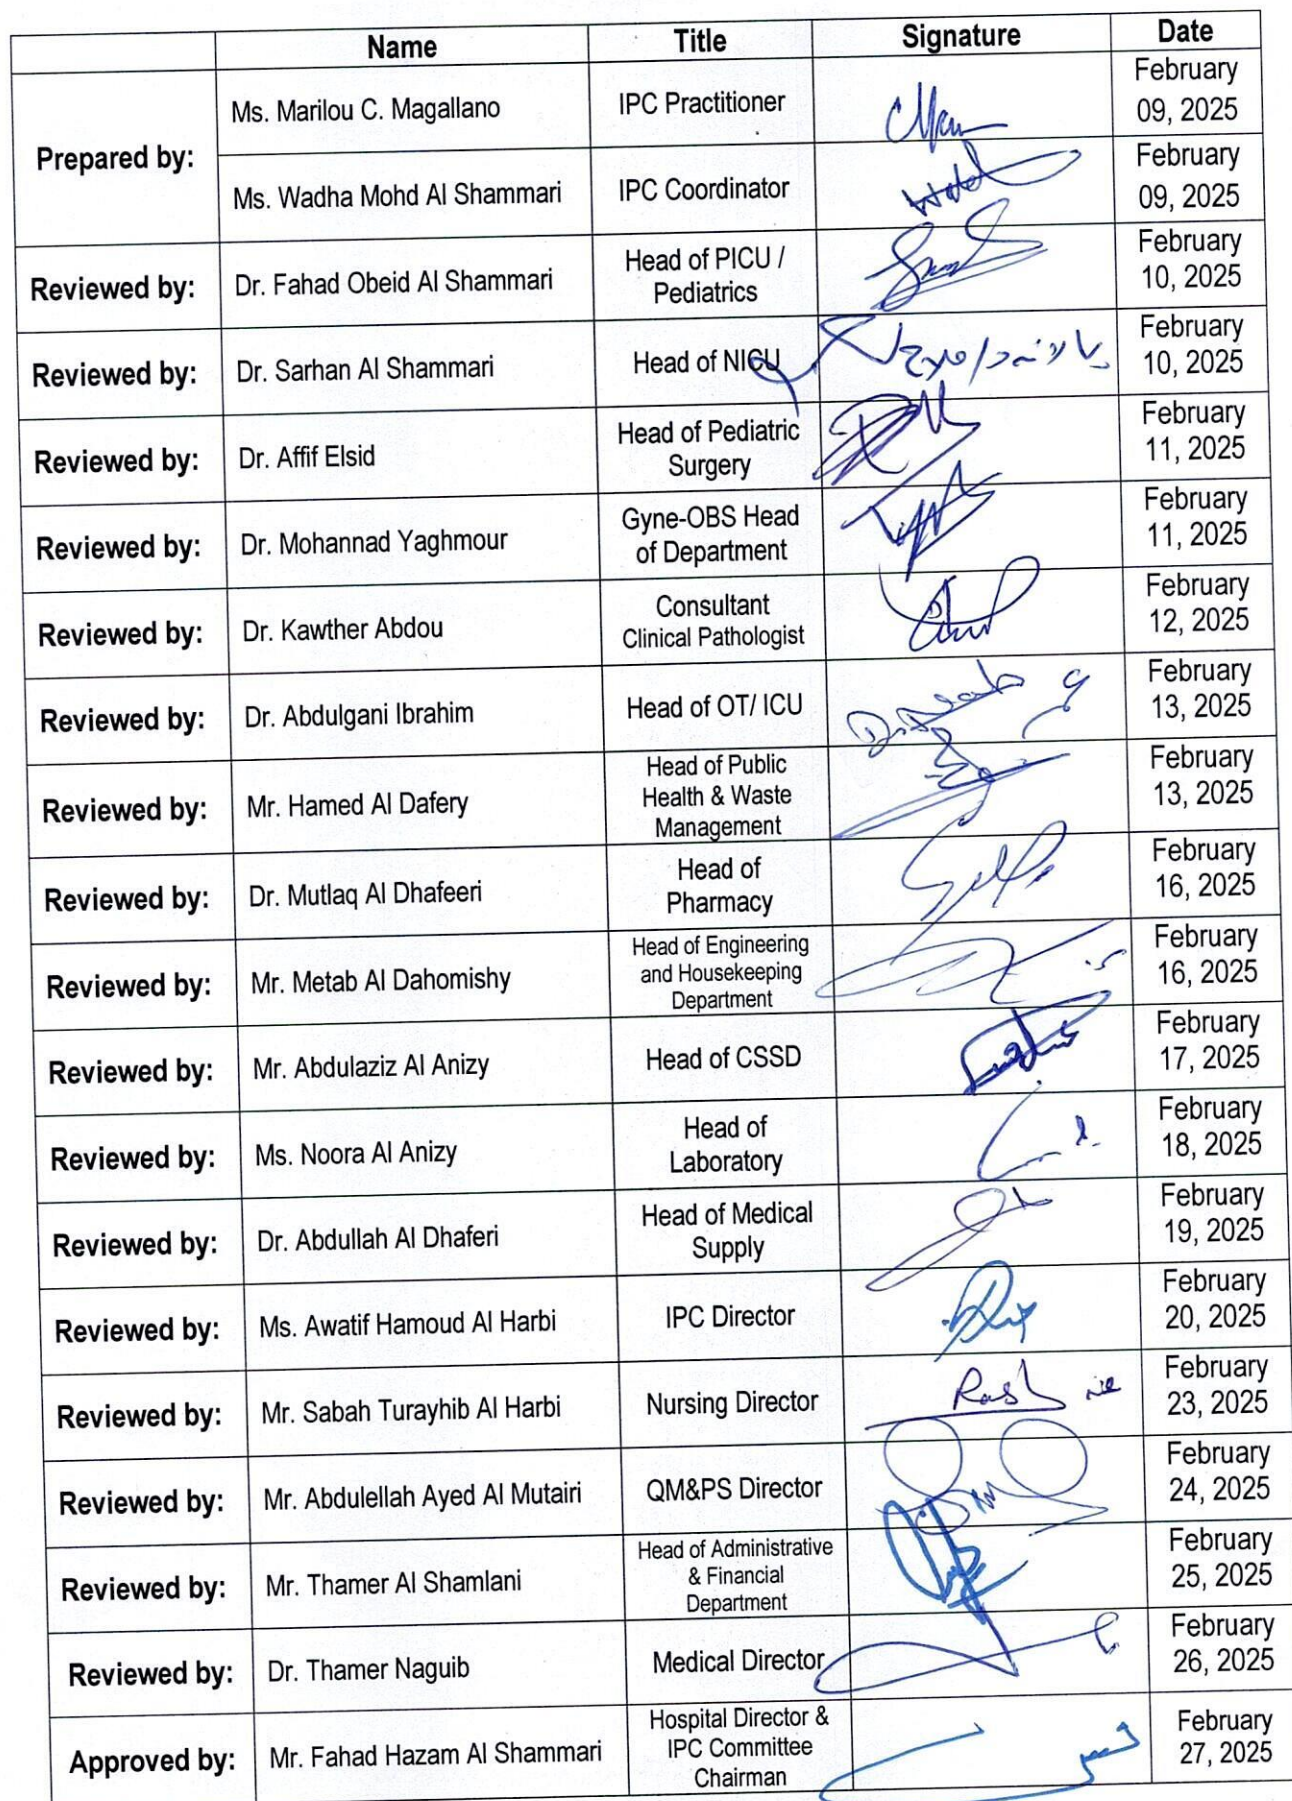 Name Title Signature Date
Prepared by:
Ms. Marilou C. Magallano IPC Practitioner February
09, 2025
Ms. Wadha Mohd Al Shammari IPC Coordinator February
09, 2025
Reviewed by: Dr. Fahad Obeid Al Shammari Head of PICU /
Pediatrics February
10, 2025
Reviewed by: Dr. Sarhan Al Shammari Head of NICU February
10, 2025
Reviewed by: Dr. Affif Elsid Head of Pediatric
Surgery February
11, 2025
Reviewed by: Dr. Mohannad Yaghmour Gyne-OBS Head
of Department February
11, 2025
Reviewed by: Dr. Kawther Abdou Consultant
Clinical Pathologist February
12, 2025
Reviewed by: Dr. Abdulgani Ibrahim Head of OT/ ICU February
13, 2025
Reviewed by: Mr. Hamed Al Dafery Head of Public
Health & Waste
Management February
13, 2025
Reviewed by: Dr. Mutlaq Al Dhafeeri Head of
Pharmacy February
16, 2025
Reviewed by: Mr. Metab Al Dahomishy Head of Engineering
and Housekeeping
Department February
16, 2025
Reviewed by: Mr. Abdulaziz Al Anizy Head of CSSD February
17, 2025
Reviewed by: Ms. Noora Al Anizy Head of
Laboratory February
18, 2025
Reviewed by: Dr. Abdullah Al Dhaferi Head of Medical
Supply February
19, 2025
Reviewed by: Ms. Awatif Hamoud Al Harbi IPC Director February
20, 2025
Reviewed by: Mr. Sabah Turayhib Al Harbi Nursing Director February
23, 2025
Reviewed by: Mr. Abdulellah Ayed Al Mutairi QM&PS Director February
24, 2025
Reviewed by: Mr. Thamer Al Shamlani Head of Administrative
& Financial
Department February
25, 2025
Reviewed by: Dr. Thamer Naguib Medical Director February
26, 2025
Approved by: Mr. Fahad Hazam Al Shammari Hospital Director &
IPC Committee
Chairman February
27, 2025